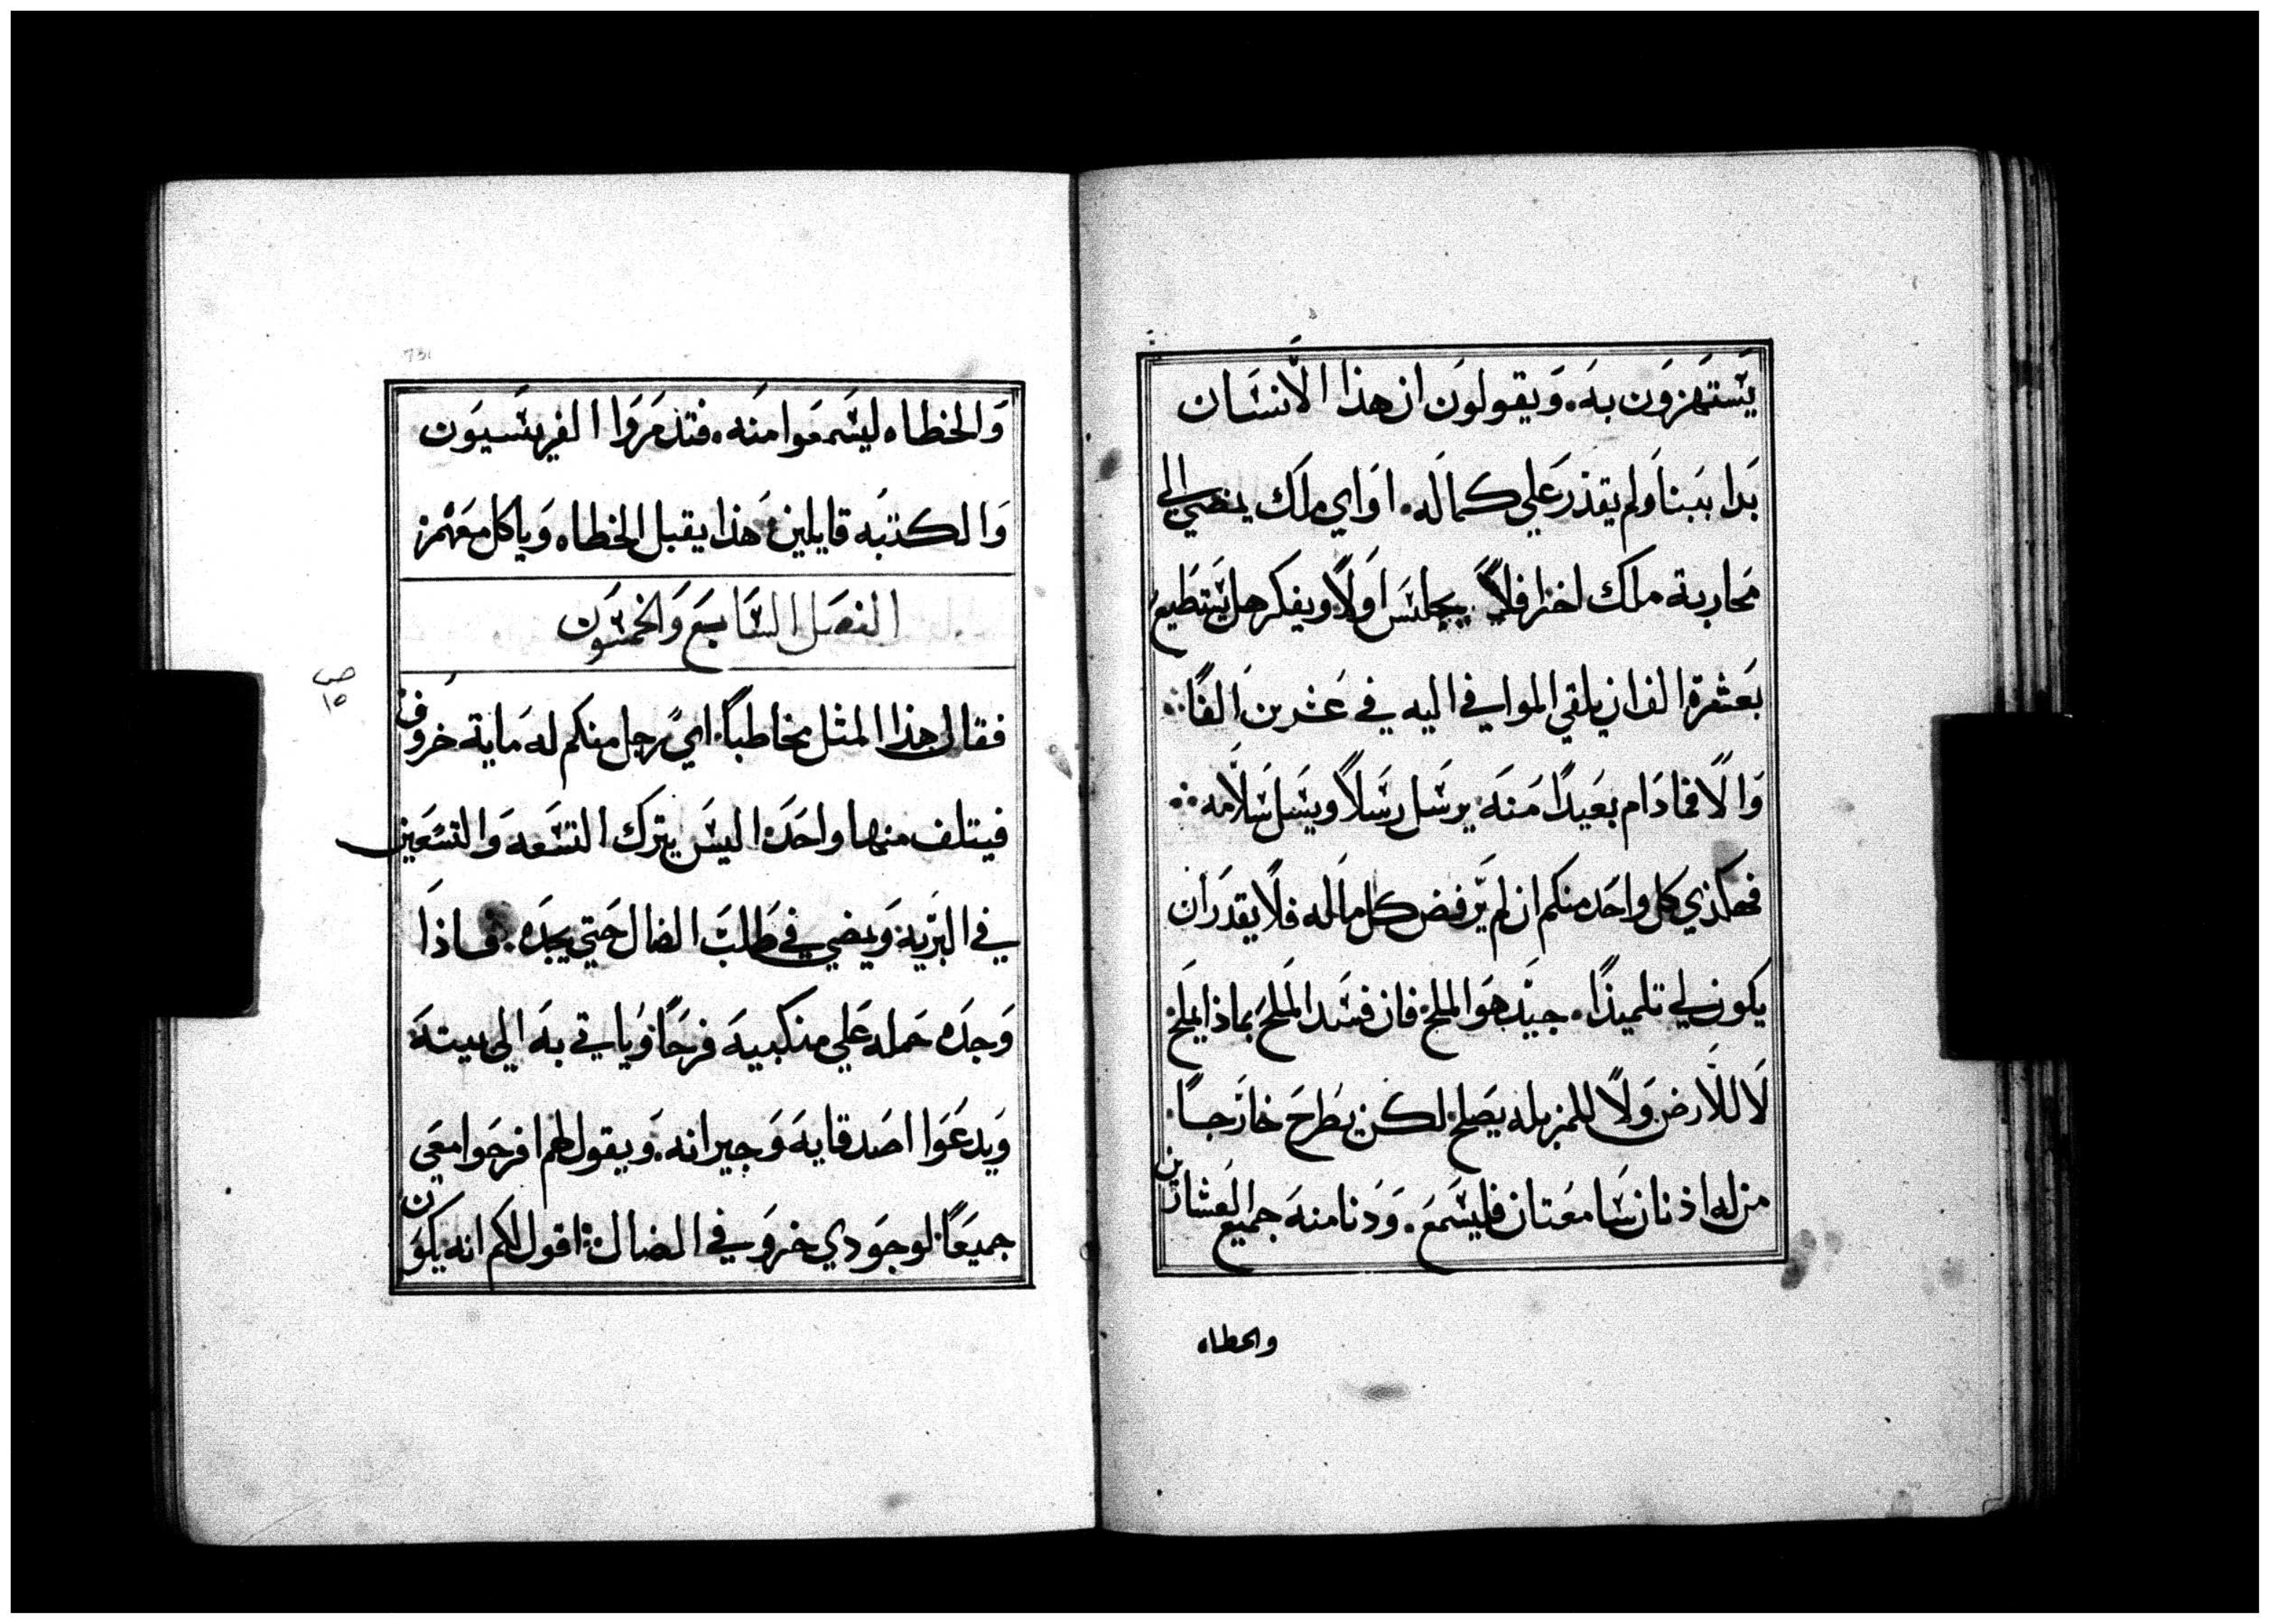 يستهزون به. ويقولون ان هذا الانسان
بدا ببنا ولم يقدر علي كماله. او اي ملك يمضي الي
محاربة ملك اخر افلا يجلس اولا ويفكر هل يستطيع
بعشرة الف ان يلقي الموافي اليه في عشرين الفا
والا فمادام بعيدا منه يرسل رسلا ويسل سلامه
فهكذي كل واحد منكم ان لم يرفض كل ماله فلا يقدر ان
يكون لي تلميذا. جيد هو الملح فان فسد الملح بماذا يملح
لا للارض ولا للمزبله يصلح لكن يطرح خارجا
من له اذنان سامعتان فليسمع. ودنا منه جميع العشارين
والخطاه
والخطاه ليسمعوا منه. فتذمروا الفريسيون
والكتبه قايلين هذا يقبل الخطاه وياكل معهم
الفصل السابع والخمسون
ص
١٥
فقال هذا المثل مخاطبا اي رجل منكم له ماية خروف
فيتلف منها واحده اليس يترك التسعه والتسعين
في البريه ويمضي في طلب الضال حتي يجده. فاذا
وجده حمله علي منكبيه فرحا وياتي به الي بيته
ويدعوا اصدقايه وجيرانه. ويقول لهم افرحوا معي
جميعا لوجودي خروفي الضال اقول لكم انه يكون